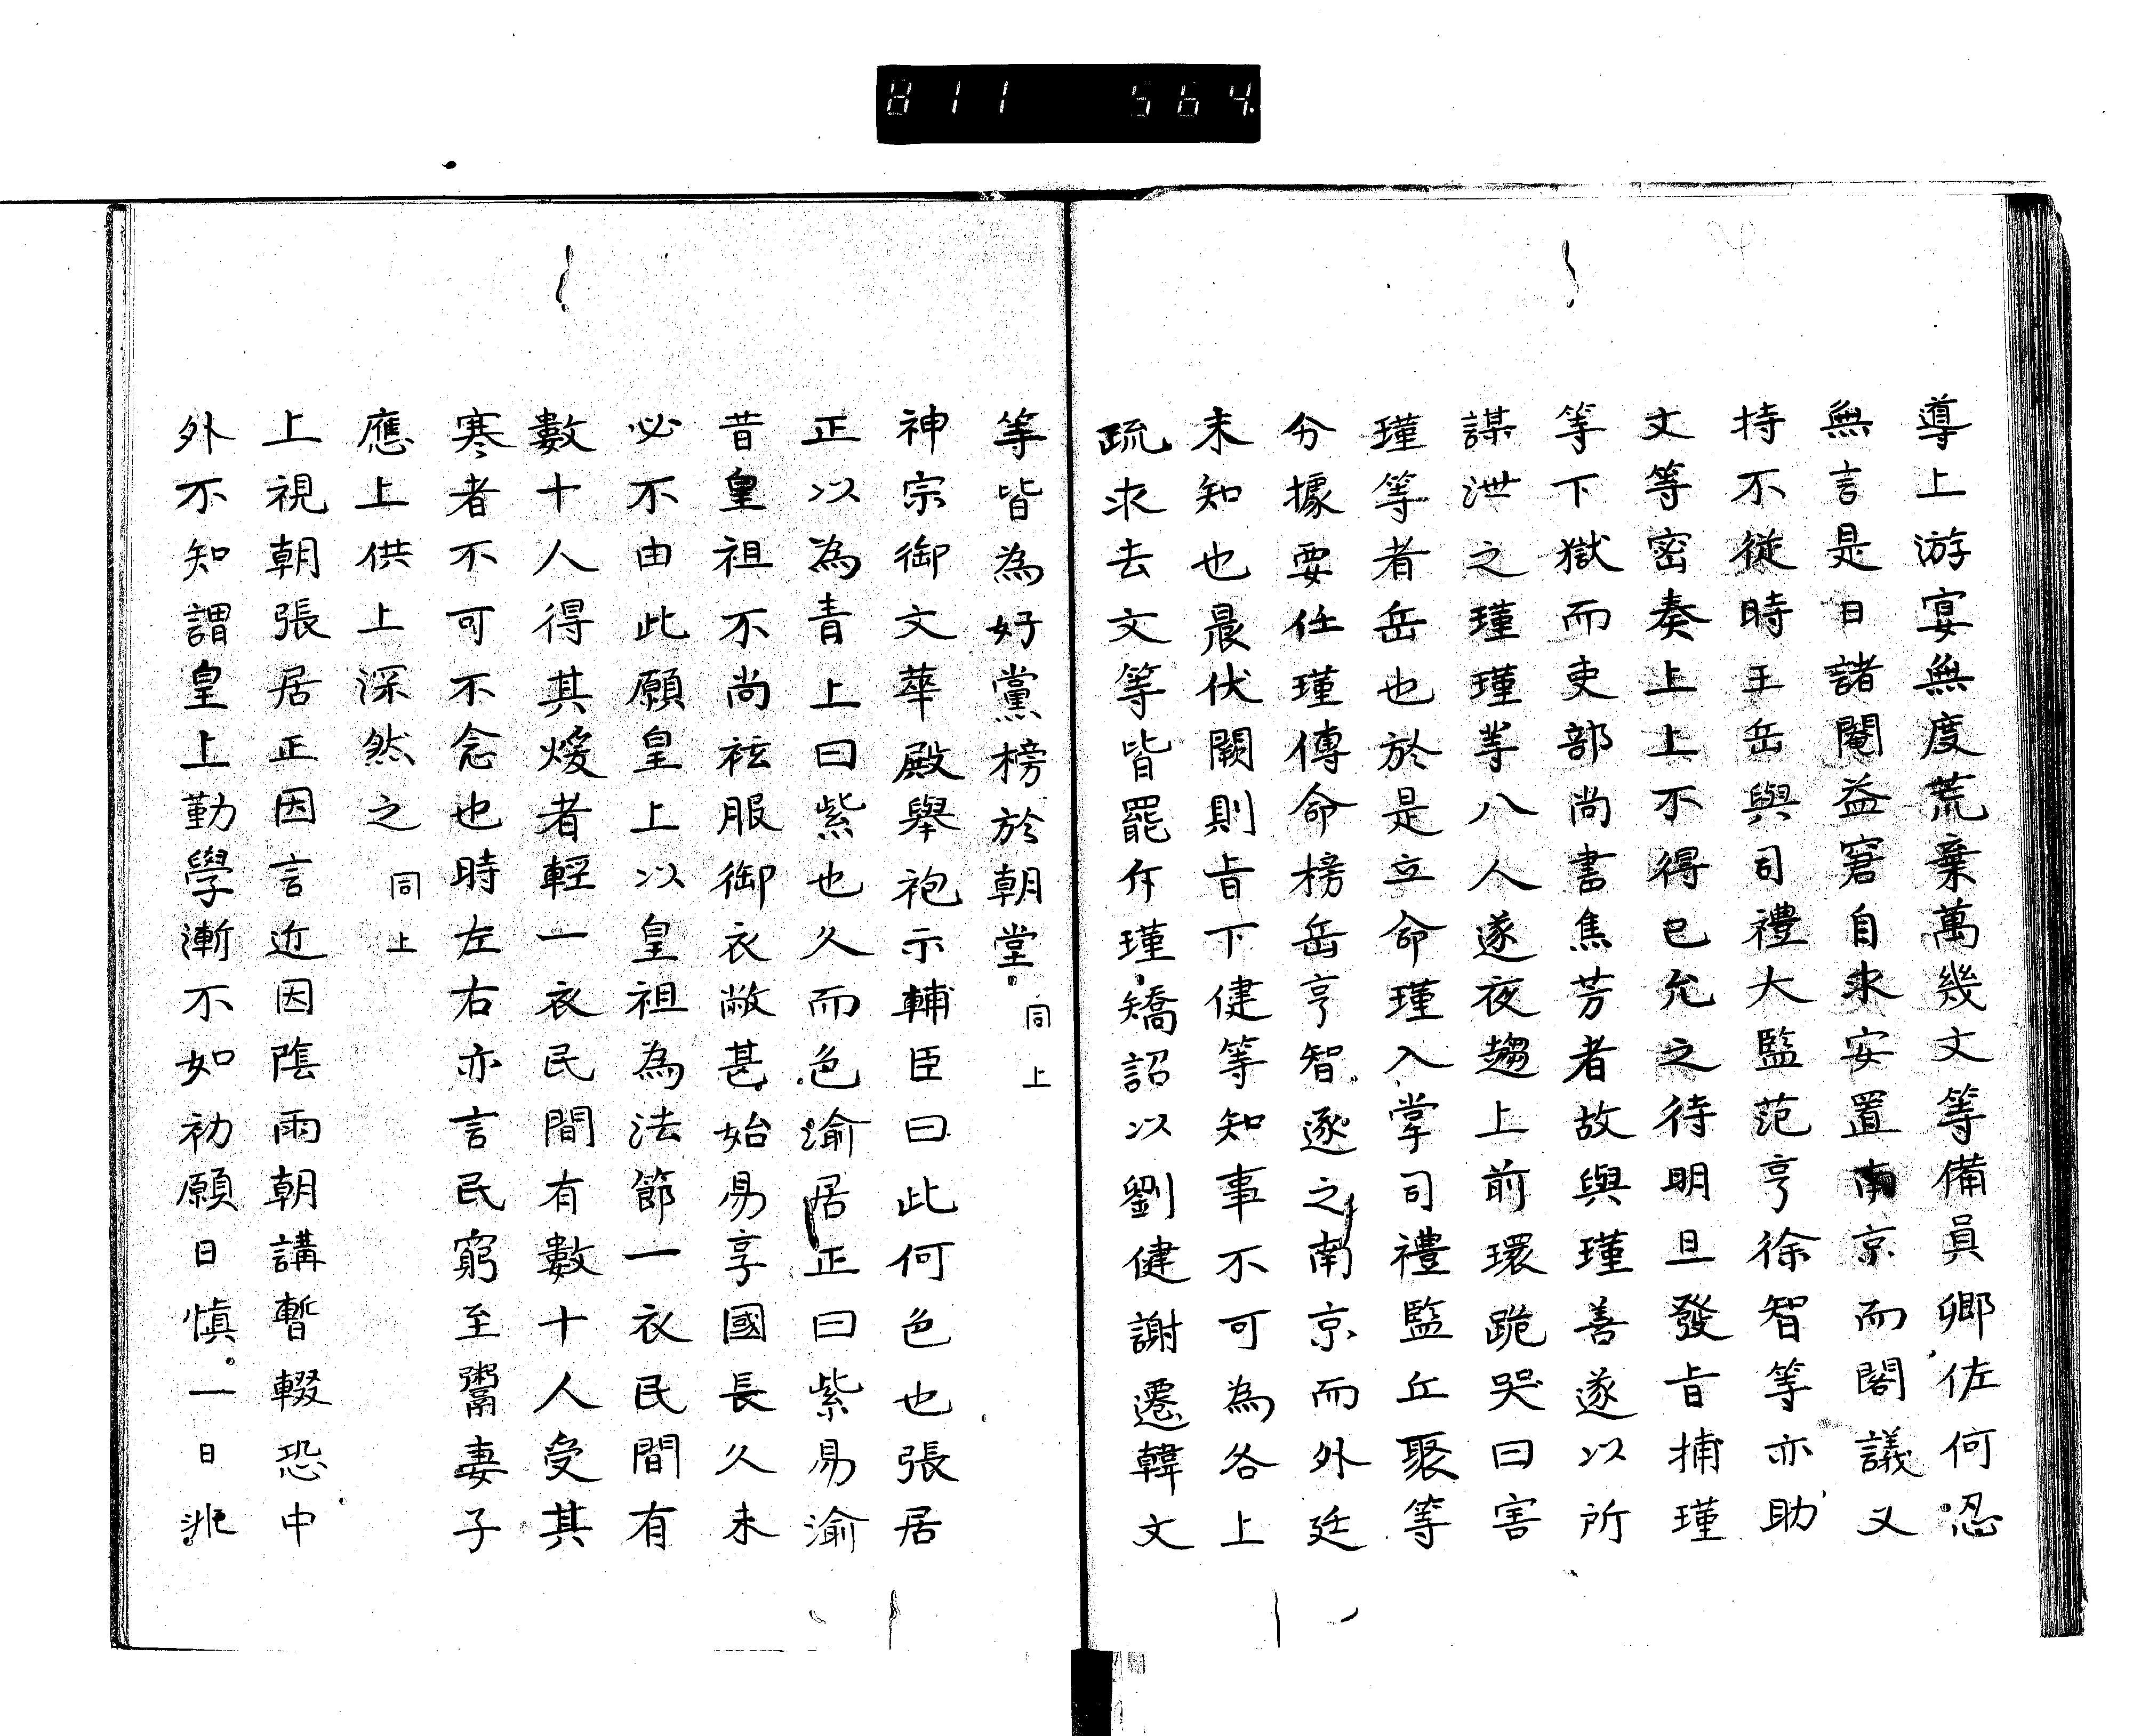 811 564
導上游宴無度荒棄萬幾文等備員卿佐何忍
無言是日諸閹益窘自求安置南京而閣議又
持不從時王岳與司禮大監范亨徐智等亦助
文等密奏上上不得已允之待明旦發旨捕瑾
等下獄而吏部尚書焦芳者故與瑾善遂以所
謀泄之瑾瑾等八人遂夜趨上前環跪哭曰害
瑾等者岳也於是立命瑾入掌司禮監丘聚等
分據要任瑾傳命榜岳亨智逐之南京而外廷
未知也晨伏闕則旨下健等知事不可為各上
疏求去文等皆罷斥瑾矯詔以劉健謝遷韓文
等皆為好黨榜於朝堂 同上
神宗御文華殿舉袍示輔臣曰此何色也張居
正以為青上曰紫也久而色渝居正曰紫易渝
昔皇祖不尚袨服御衣敝甚始易享國長久未
必不由此願皇上以皇祖為法節一衣民間有
數十人得其煖者輕一衣民間有數十人受其
寒者不可不念也時左右亦言民窮至鬻妻子
應上供上深然之 同上
上視朝張居正因言近因陰雨朝講暫輟恐中
外不知謂皇上勤學漸不如初願日慎一日兆